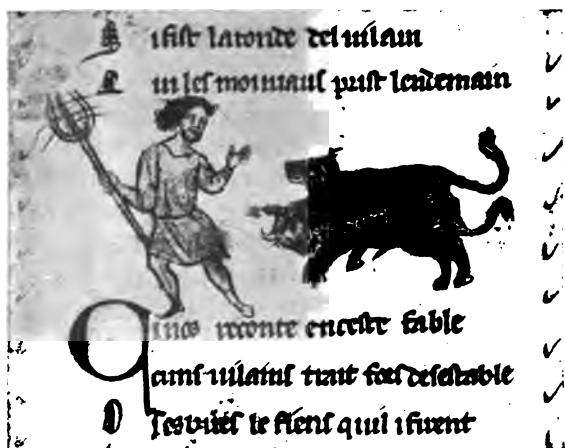 S ifist laronde del uilain
Q ui les moiniaus prist lendemain
inos reconte enceste fable
cuns uilains trait fors desestable
O sesbues le fiens quil ifirent